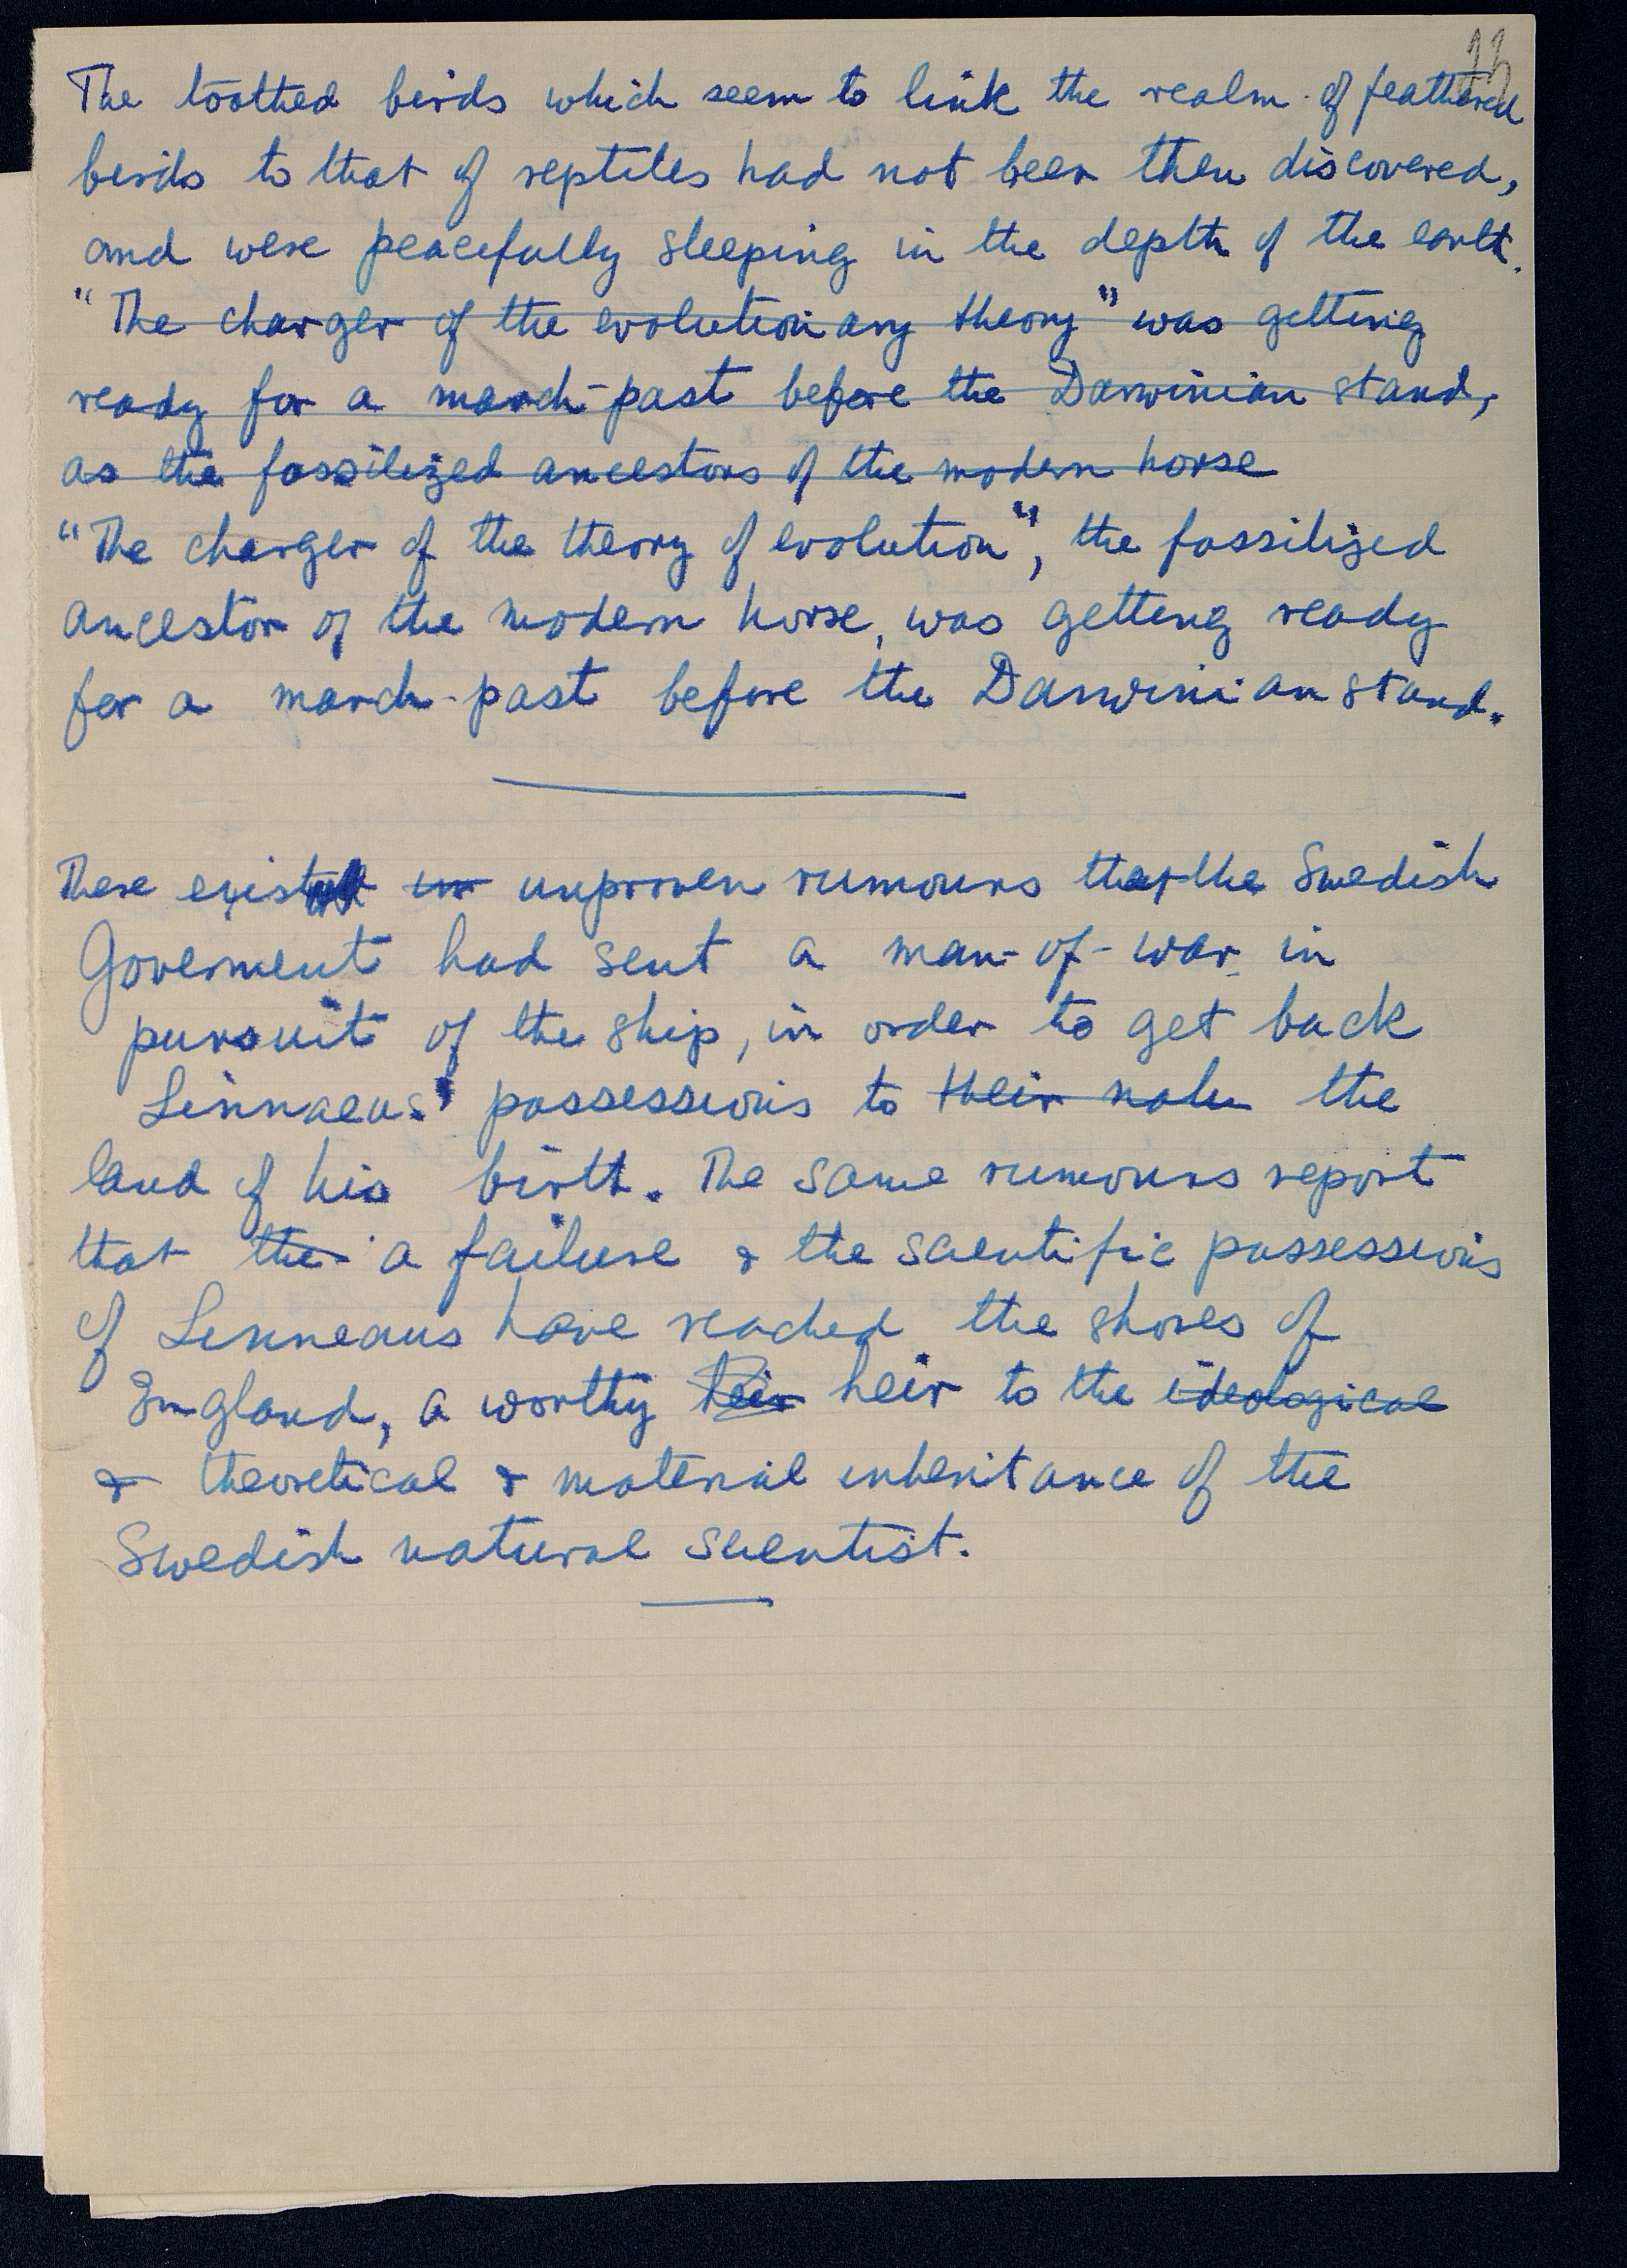 The toothed birds which seem to link the realm of feathered
birds to that of reptiles had not been then discovered,
and were peacefully sleeping in the depth of the earth.
"The charger of the evolutionary theory" was getting
ready for a march-past before the Darwinian stand,
as the fossilized ancestors of the modern horse
"The charger of the theory of evolution", the fossilized
ancestor of the modern horse, was getting ready
for a march-past before the Darwinian stand.
There exist un unproven rumours that the Swedish
Goverment had sent a man-of-war in
pursuit of the ship, in order to get back
Linnaeus' possessions to their the
land of his birth. The same rumours report
that the a failure & the scientific possessions
of Linneaus have reached the shores of
England, a worthy heir to the ideological
& theoretical & material inheritance of the
Swedish natural scientist.